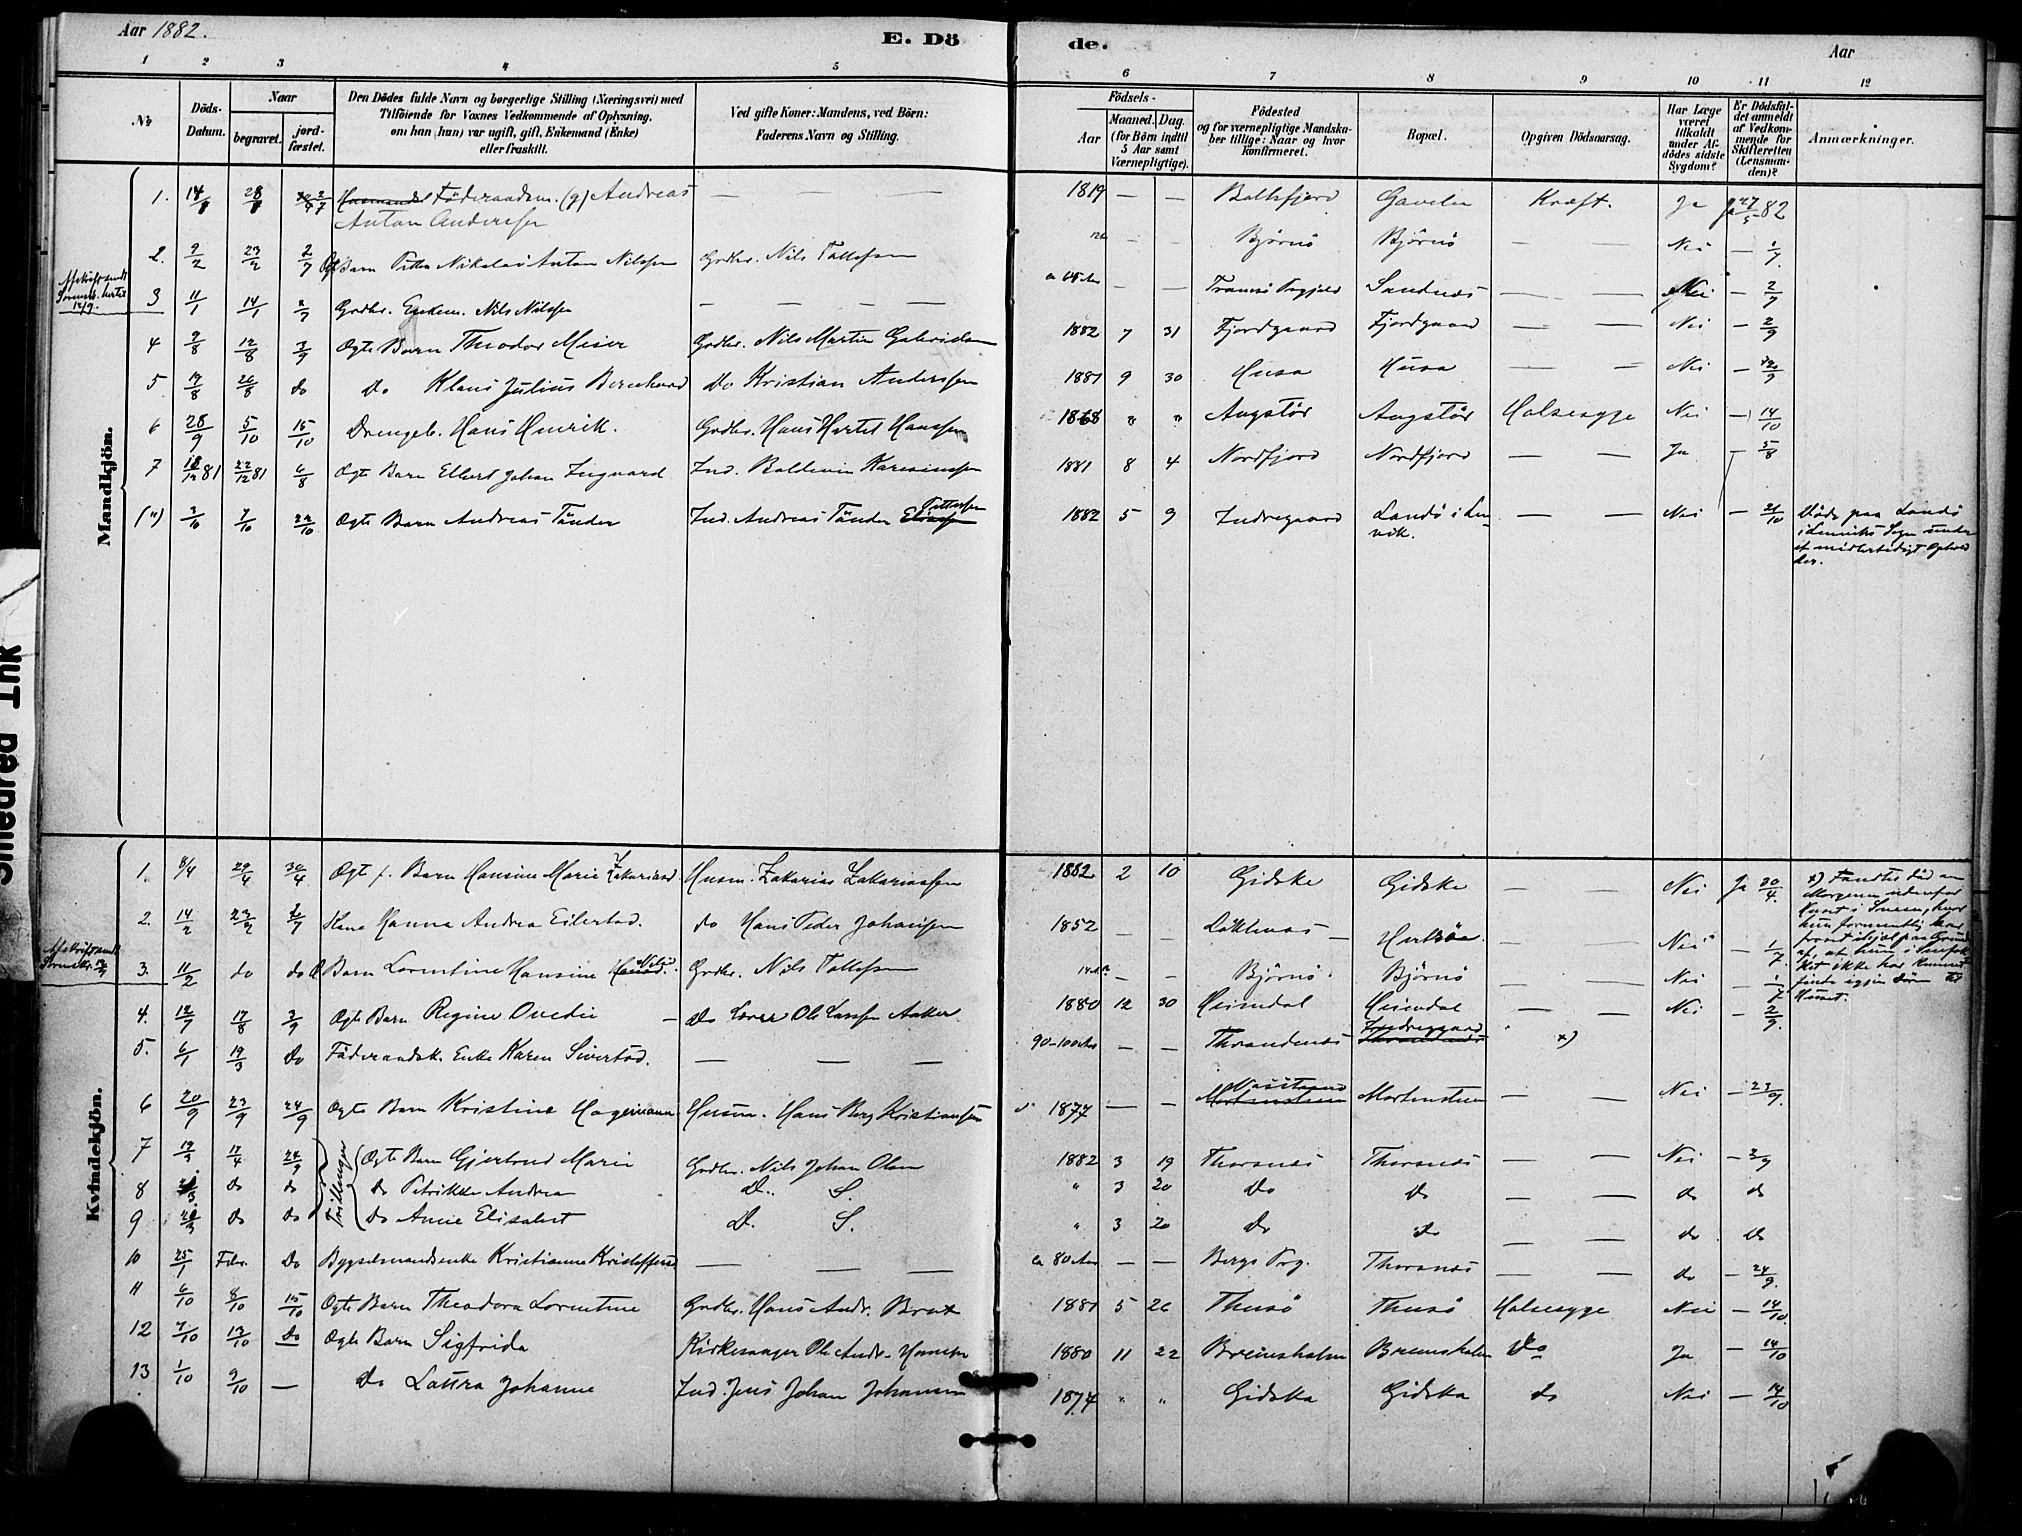 Aar 1882.
E. Dö
de.
Aar
1 2 3 4 5 6 7 8 9 10 11 12
No
Döds-Datum.
Naar
begravet.
jord-fæstet.
Den Dödes fulde Navn og borgerlige Stilling (Næringsvei) med
Tilföiende for Voxnes Vedkommende af Oplysning,
om han (hun) var ugift, gift, Enkemand (Enke)
eller fraskilt.
Ved gifte Koner: Mandens, ved Börn:
Faderens Navn og Stilling.
Födsels-
Aar
Maaned. Dag.
(for Börn indtil
5 Aar samt
Værnepligtige).
Födested
og for værnepligtige Mandska-
ber tillige: Naar og hvor
konfirmeret.
Bopæl.
Opgiven Dödsaarsag.
Har Læge
været
tilkaldt
under Af-
dödes sidste
Sygdom?
Er Dödsfal-
det anmeldt
af Vedkom-
mende for
Skifteretten
(Lensman-
den)?
Anmærkninger.
Mandkjön.
1. Föderaadsm. (g) Andreas — 1819 — — Gavelen Kræft. Ja 82
Anton Anderssen
2. 9/2 23/2 2/7 Barn Nikolai Anton Nilssen Grdbr. Nils Tollefsen — — Björnö Björnö — — Nei — 1/7
3 11/1 14/1 2/7 Grdbr. Enkem. Nils Nilssen — — — — — Sandnes — — Nei — 2/7
4 9/8 12/8 3/9 Ogte Barn Theodor Meier Grdbr. Nils Martin 1882 7 31 Fjordgaard Fjordgaard — — Nei — 2/9
5 19/8 26/8 do Do Klaus Julius Bernhard Do Kristian Anderssen 1881 9 30 Husa Husa — — Nei
6 28/9 5/10 15/10 Drengeb. Hans Henrik. Grdbr. Hans Hartel Hanssen 1868 " " Angstör Angstör Halsesyge Nei — 14/10
7 18/12 81 22/12 81 6/8 Ogte Barn Ellert Johan Ingvard Ind. Baldevin 1881 8 4 Nordfjord Nordfjord — — Ja — 5/8
(") 3/10 7/10 22/10 Ogte Barn Andreas Tönder Ind. Andreas Tönder 1882 5 9 Indregaard Landö i Len- — — Nei — 21/10 Döde paa Landö
vik.
i Lenviks Sogn under
et midlertidigt Ophold
der.
Kvindekjön.
1. 8/4 29/4 30/4 Ogt f. Barn Hansine Marie Zakariasd Husm. Zakarias Zakariassen 1882 2 10 Gidske Gidske — — Nei Ja 20/4
x) Fandtes död om
Morgenen udenfor
Huset i Sneen, hvor
hun formentlig har
frosset ihjel paa Grund
af, at hun
ikke har kunnet
finde igjen Dören til
Huset.
2. 14/2 23/2 2/7 Kone Hanna Andrea Eilertsd. do Hans Peder Johansen 1852 — — — — Nei — 1/7
3. 11/2 do do Barn Lorentine Hansine Nilsd. Grdbr. Nils Tollefsen — — Björnö Björnö — — Nei — 1/7
4. 12/7 17/8 3/9 Ogte Barn Regine Ovedie — Do Ole Larssen 1880 12 30 Heimdal Heimdal — — Nei — 2/9
5. 6/1 19/3 Do Föderaadsk. Enke Karen Sivertsd. — — — 90-100 Aar — — Throndenæs Indregaard x)
6 20/9 23/9 24/9 Ogte Barn Kristine Hagemann Husm. Hans Berg Kristiansen 1877 — — Mortenstein — — Nei — 23/9
7 19/3 17/4 24/9 Ogte Barn Gjertrud Marie Grdbr. Nils Johan Olsen 1882 3 19 Thorsnæs Thorsnæs — — Nei
Trillinger
8 do do Do Petrikke Andrea D. S. " 3 20 Do Do — — do do
9 20/3 do Do Do Anne Elisabet D. S. " 3 20 Do Do — — do do
10 25/1 Febr. Do Bygselmandsenke Kristianna Kristoffersd — — — ca 80 Aar — — Bergs Prg. Thorsnæs — — Do — 24/9
11 6/10 8/10 15/10 Ogte Barn Theodora Lorentine Grdbr. Hans Andr. Brox 1881 5 26 Thusö Thusö Halsesyge Nei — 14/10
12 7/10 13/10 Do Ogte Barn Sigfrida Kirkesanger Ole Andr. Hansen 1880 11 22 Bremsholm Bremsholm Do Ja — 14/10
13 1/10 9/10 — Do Laura Johanne Ind. Jens Johan Johansen 1874 " " Gidska Gidska do Nei — 14/10